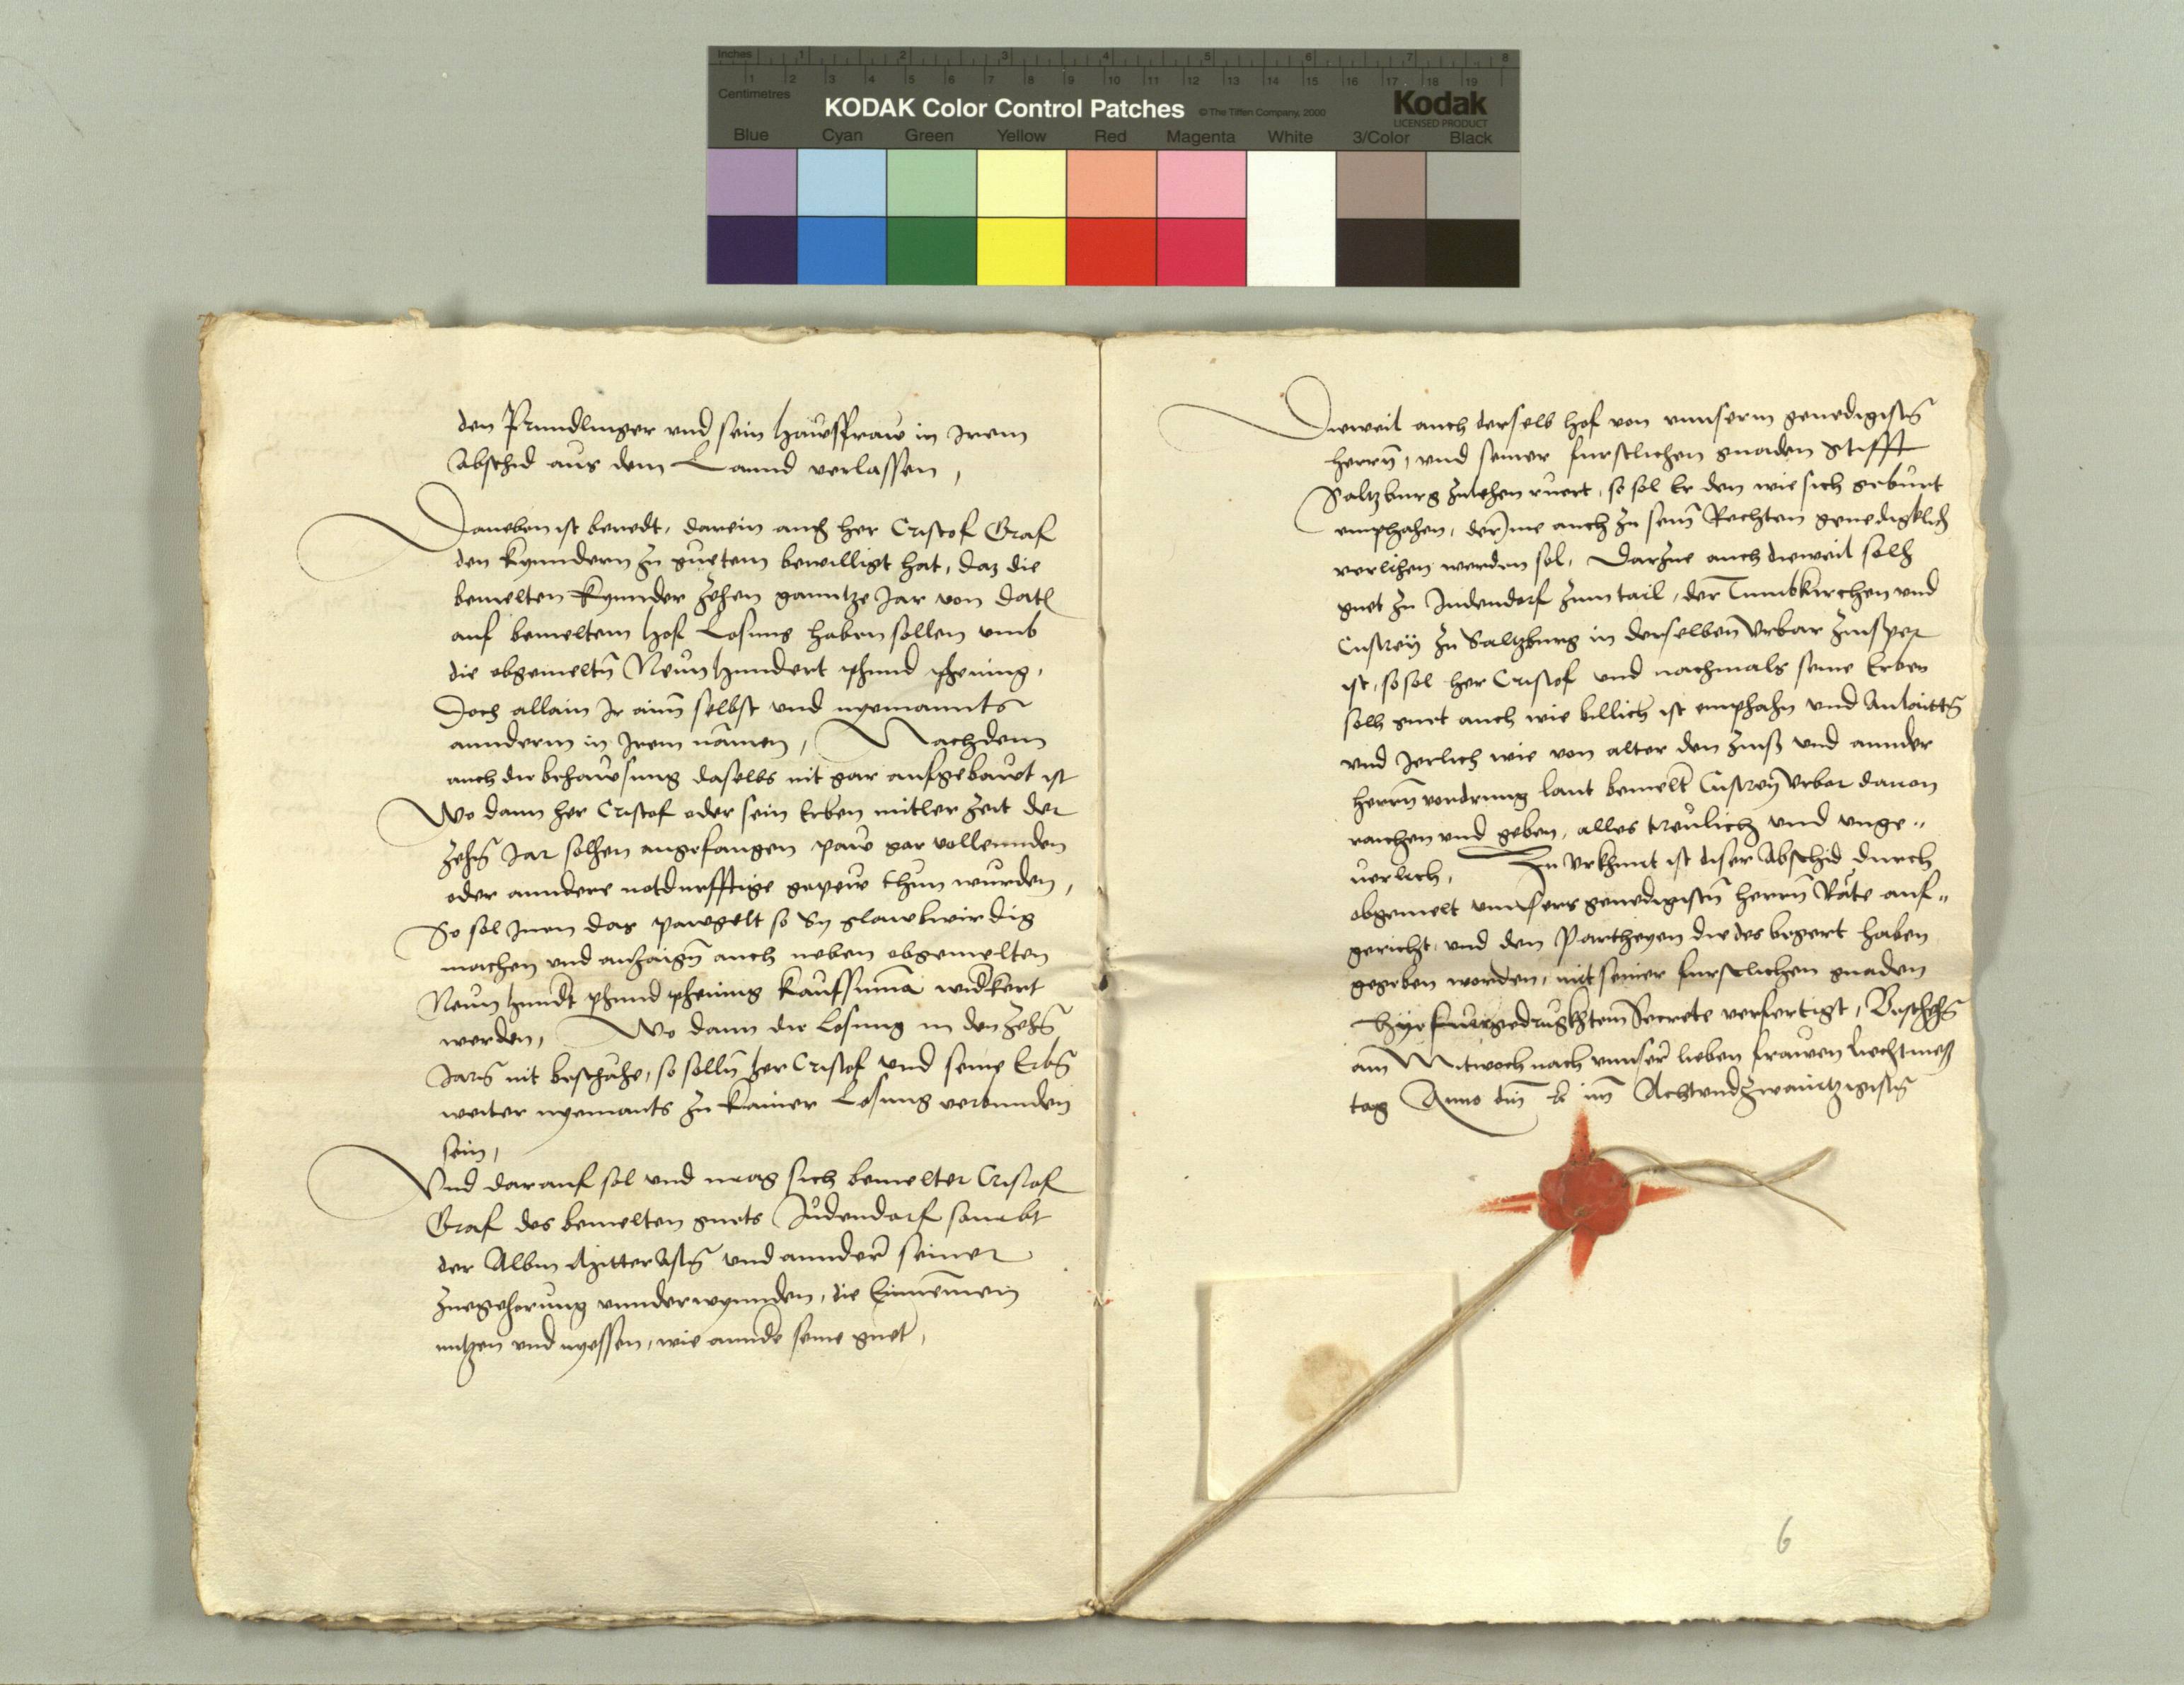 Inches 1 2 3 4 5 6 7 8
1 2 3 4 5 6 7 8 9 10 11 12 13 14 15 16 17 18 19
Centimetres
KODAK Color Control Patches © The Tiffen Company, 2000 Kodak
LICENSED PRODUCT
Blue Cyan Green Yellow Red Magenta White 3/Color Black
den Prundlinger vnd sein hawsfraw in Irem
Abschid aus dem Lannd verlassen,
Daneben ist beredt, darein auch her Cristof Graf
den kynndern zu guetem bewilligt hat, daz die
bemelten kynnder zehen ganntze Jar von datl
auf bemeltem hof Losung haben sollen vmb
die obgemeltn Newn hundert phund phening,
Doch allain Ir aim selbst vnd nyemannts
annderm in Irem namen, Nachdem
auch die behawsung daselbs nit gar aufgebawt ist
Wo dann her Cristof oder sein Erben mitler zeit der
zehn Jar solhen angefangen paw gar vollennden
oder anndere notdurfftige gepew thun wurden,
So sol Inen das pawgelt so Sy glawbwirdig
machen vnd anzaign auch neben obgemelten
Newn hundt phund phening kaufsuma widkert
werden, Wo dann die Losung in den zehn
Jarn nit beschähe, so solln her Cristof vnd seine Erbn
weiter nyemants zu kainer Losung verbunden
sein,
Vnd darauf sol vnd mag sich bemelter Cristof
Graf des bemelten guets Judendorf sambt
der Albm vnd annder seiner
zuegehorung vnnderwynnden, die Einnemen
nutzen vnd nyessen, wie annde seine guet,
Dieweil auch derselb hof von vnnserm genedigistn
herrn, vnd seiner furstlichen gnaden Stifft
Saltzburg zulehen ruert, so sol Er den wie sich geburt
emphahen, der Ime auch zu sein Rechten genedigklich
verlihen werden sol, Darzue auch dieweil solh
guet zu Judendorf zum tail, der Tumbkirchen vnd
Custrey zu Saltzburg in derselben Vrbar zinsper
ist, so sol her Cristof vnd nachmals seine Erben
solh guet auch wie billich ist emphahn vnd Anlaittn
vnd Jerlich wie von alter den zinß vnd annder
herrn vordrung laut bemelt Custrey Vrbar dauon
raichen vnd geben, alles treulich vnd vnge„
uerlich, Zu Vrkhunt ist diser Abschid durch
obgemelt vnnsers genedigistn herrn Räte auf„
gericht, vnd den Partheyen die des begert haben
gegeben worden, mit seiner furstlichen gnaden
hyefurgedrugktem Secrete verfertigt, Beschehn
am Mitwoch nach vnnser lieben frawen Liechtmeß
tag Anno dm im Achtvndzwaintzigistn
6